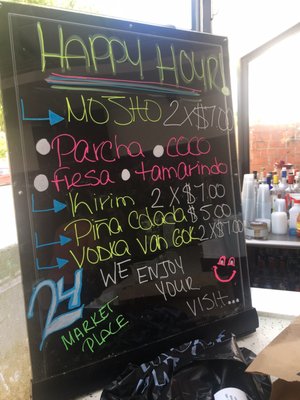 HAPPY HOUR!
MOJITO 2X$7.00
Parcha coco
fresa tamarindo
Kirim 2X$7.00
Piña Colada $5.00
Vodka Van Gok 2X$7.00
24
MARKET
PLACE
WE ENJOY
YOUR
VISIT...